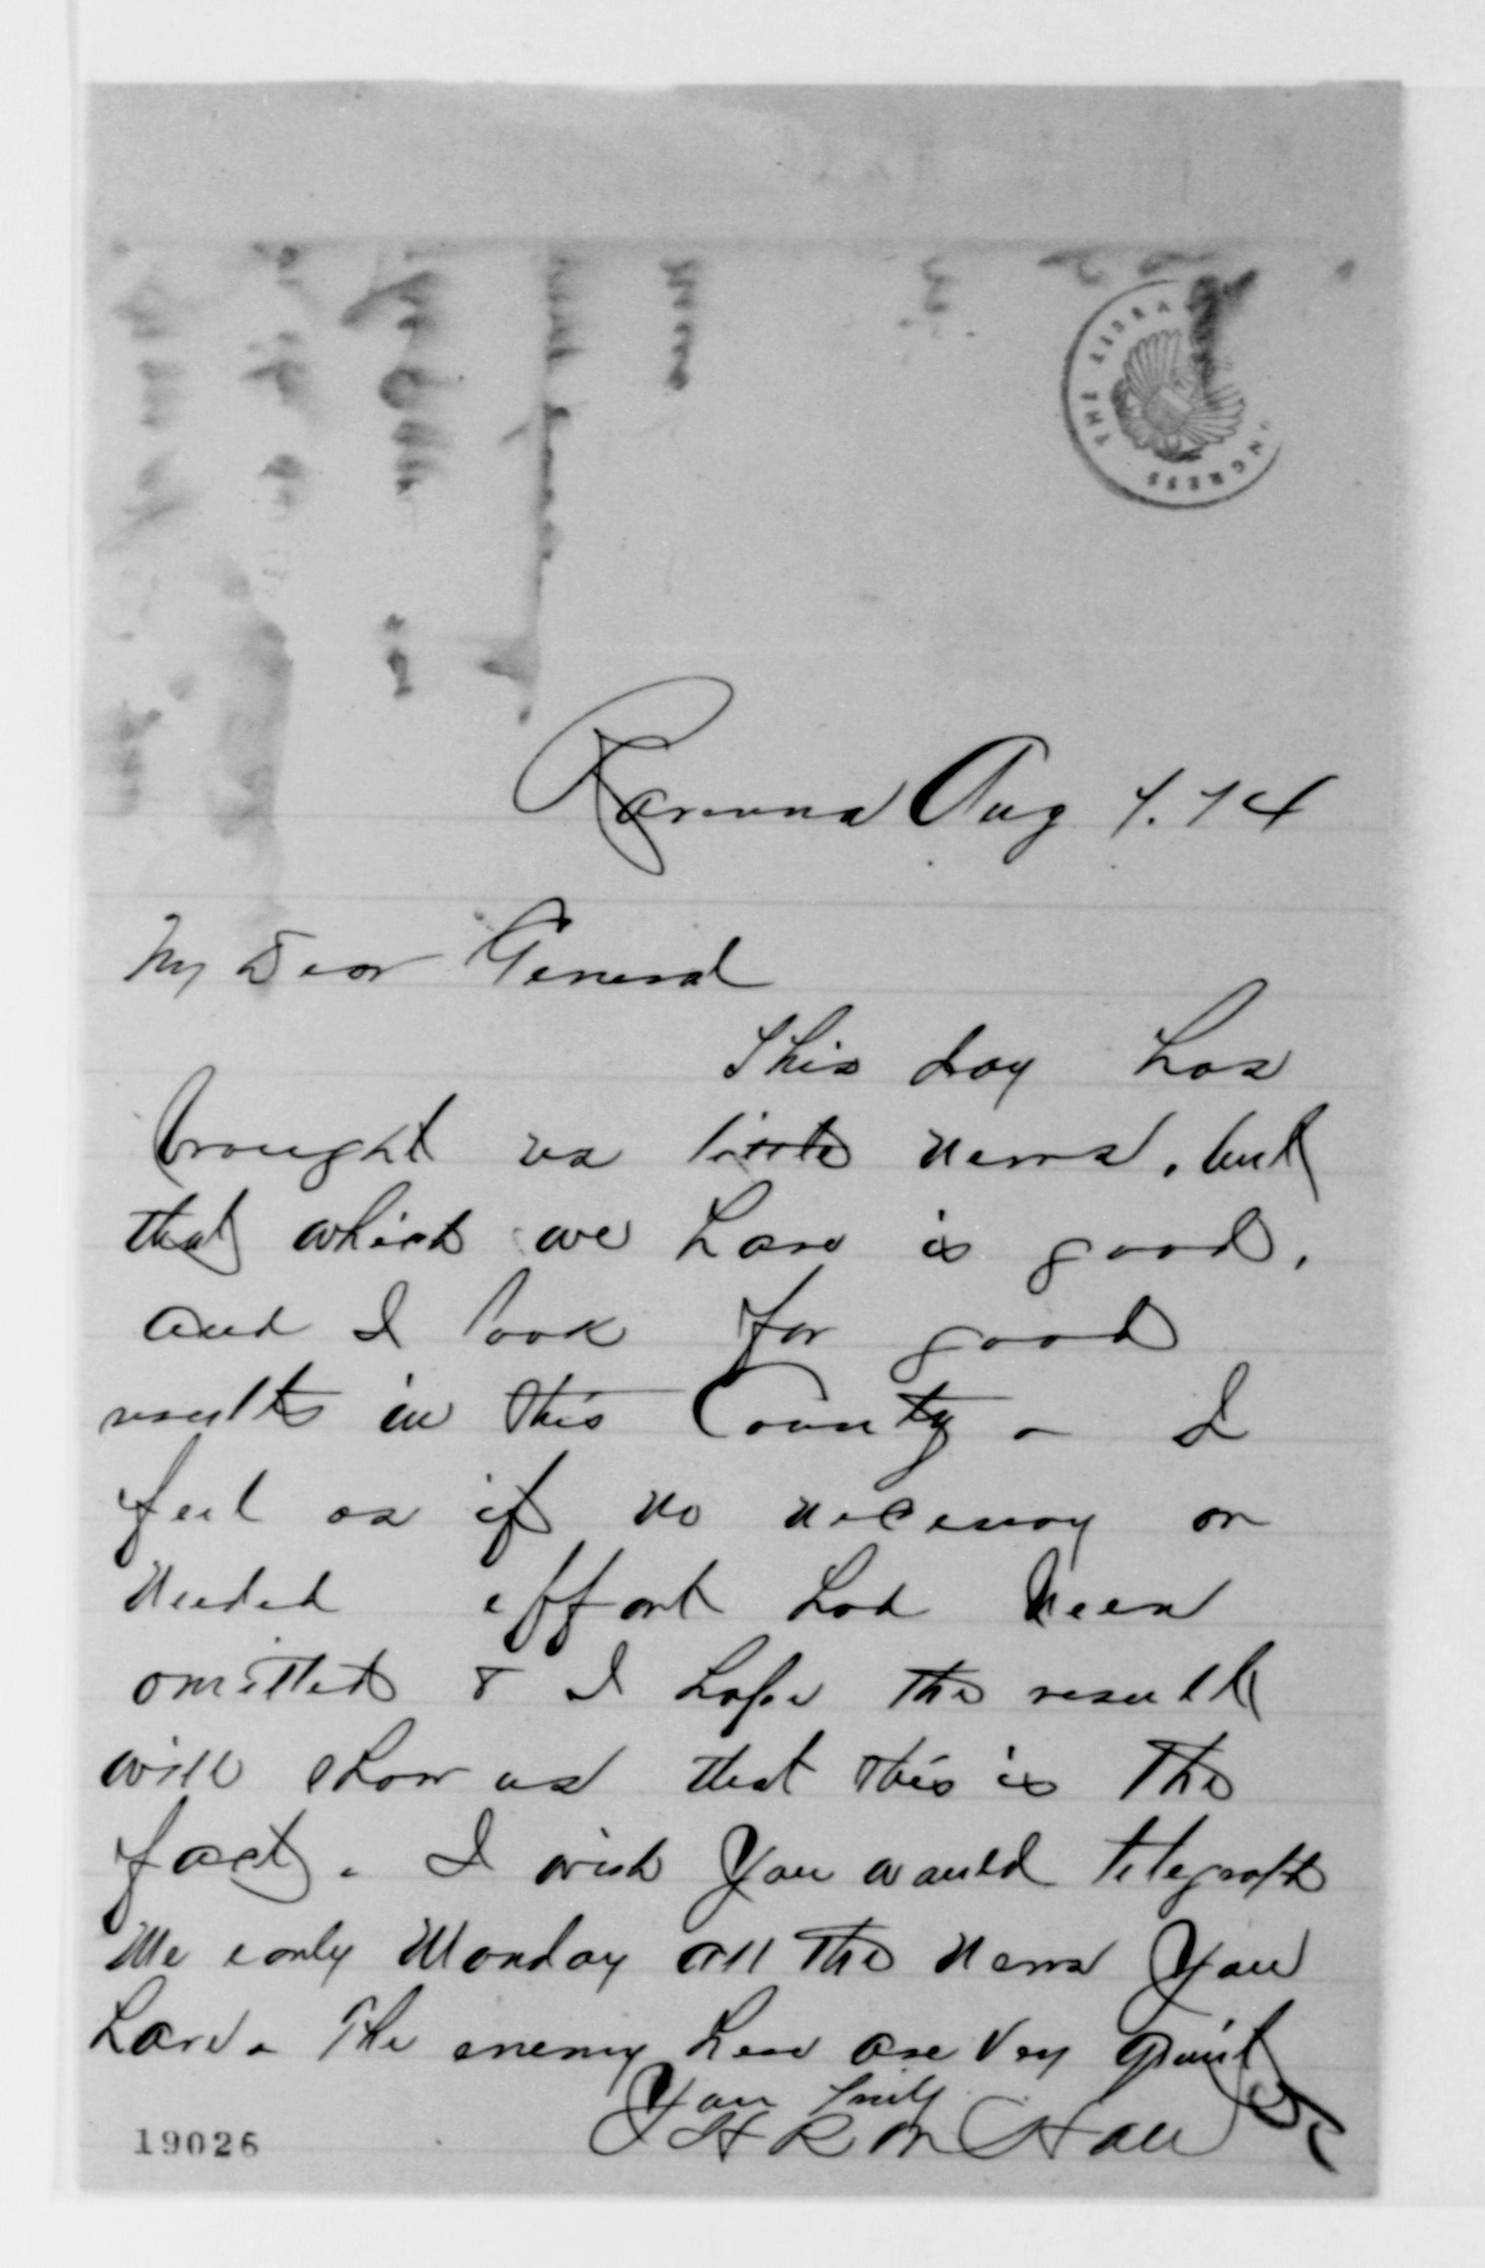 THE LIBRA NGRESS
Ravenna Aug 7. 74
My Dear General
This day has
brought us little news, but
that which we have is good,
and I look for good
results in this County - I
feel as if no necessary or
needed effort had been
omitted & I hope the result
will show us that this is the
fact. I wish you would telegraph
me early Monday all the news you
have. The enemy here are very quiet
Your truly
Hall
19026